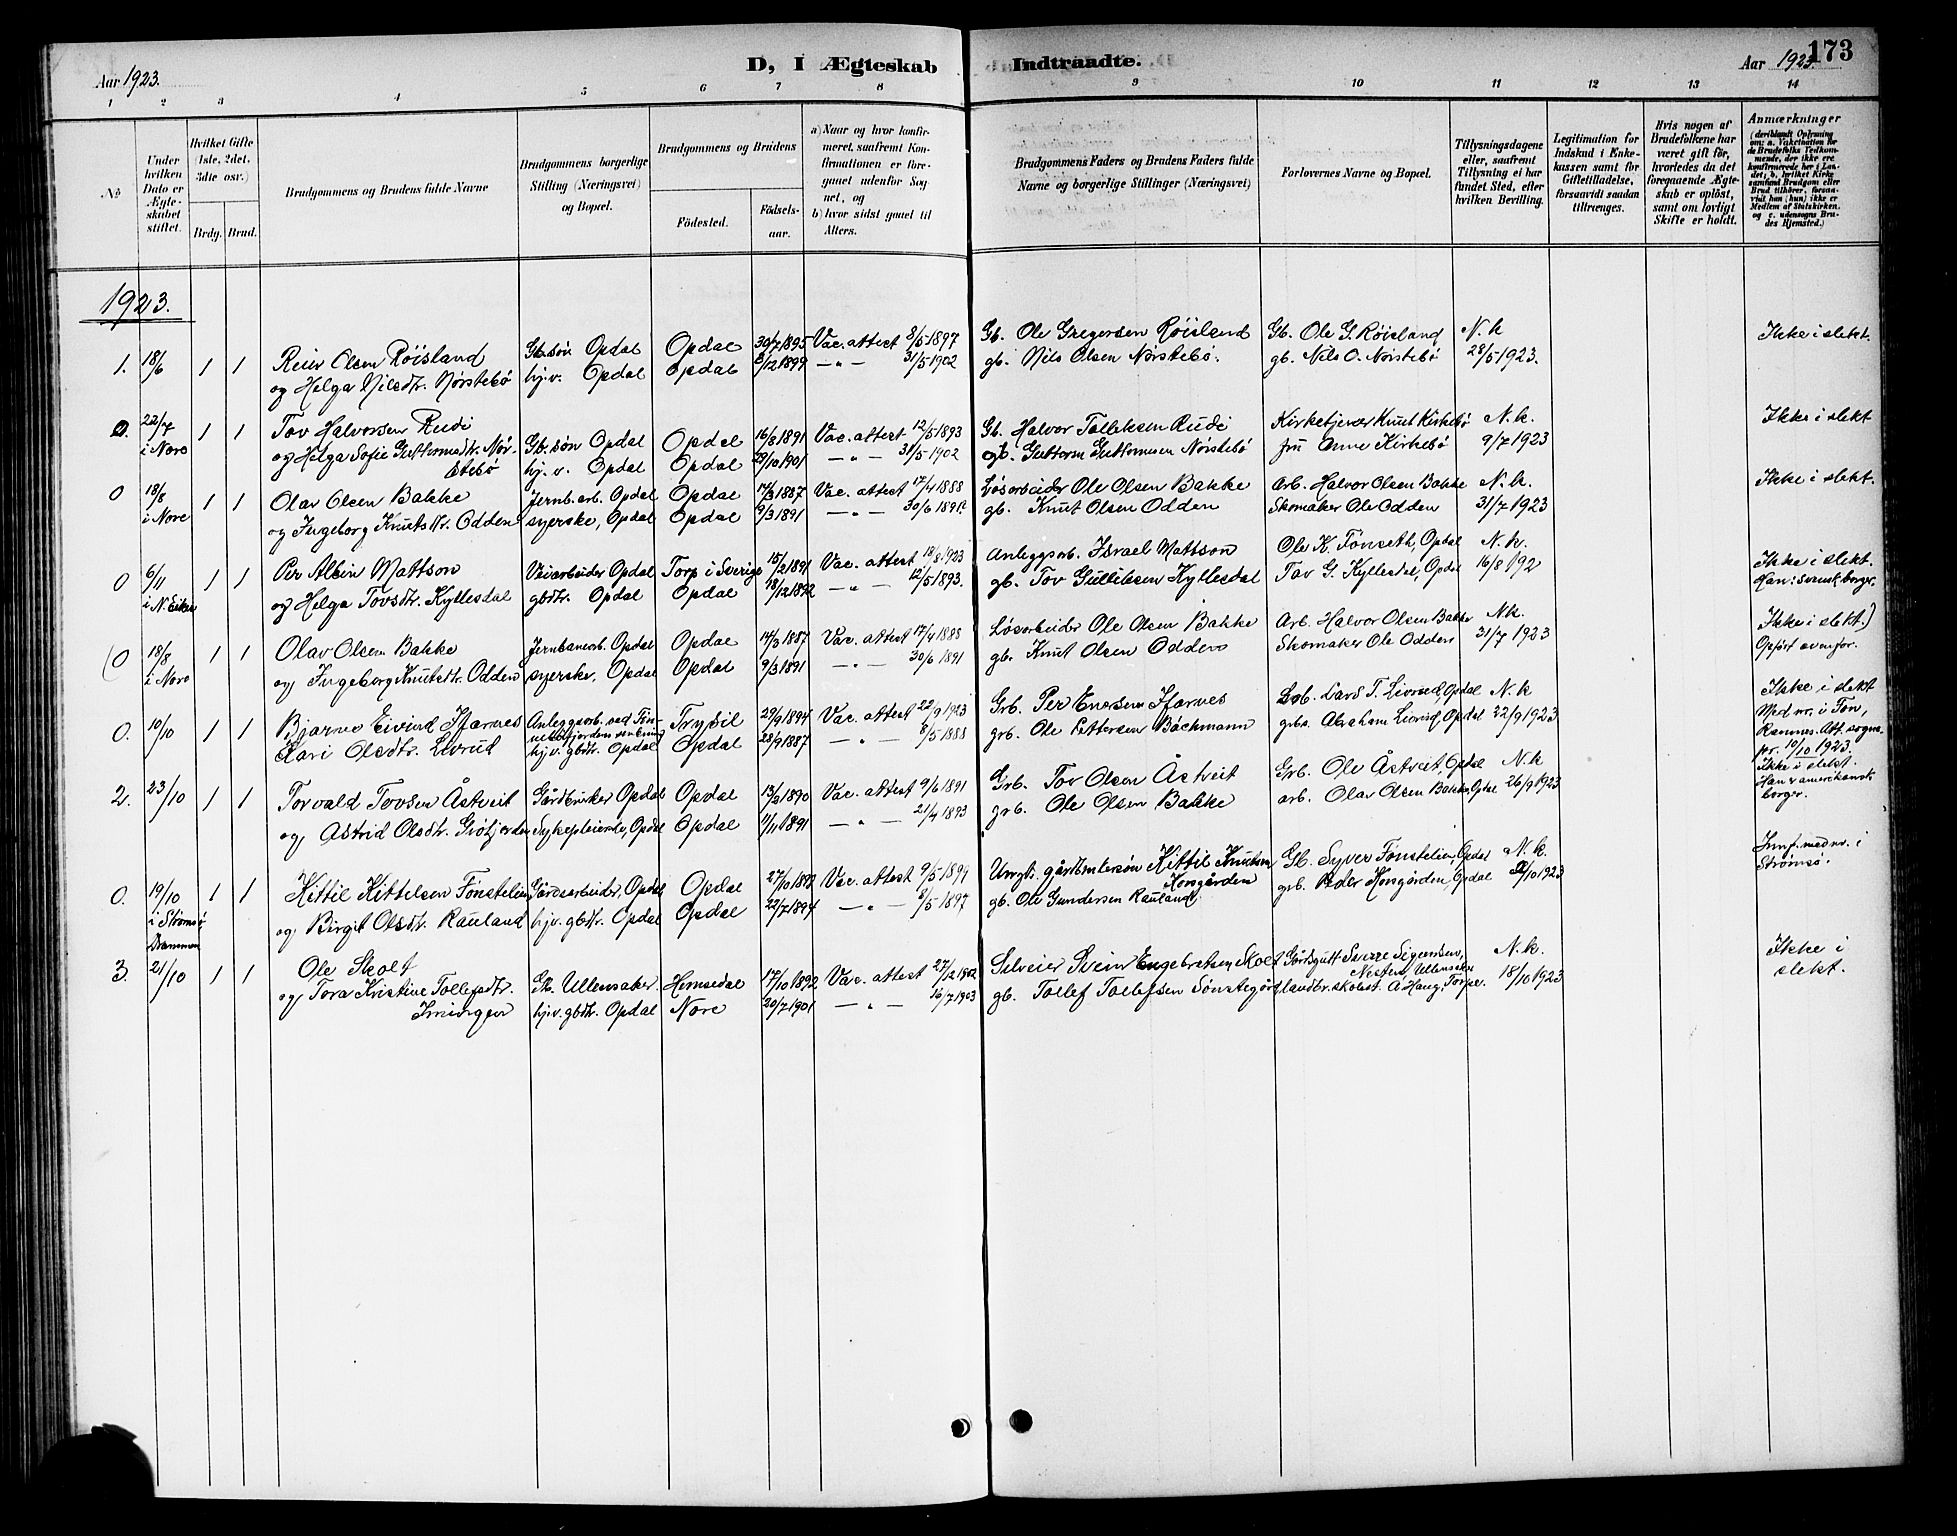 Aar 1923.
D, I Ægteskab Indtraadte.
Aar 1923.
173
1 2 3 4 5 6 7 8 9 10 11 12 13 14
No
Under hvilken Dato er Ægteskabet stiftet.
Hvilket Gifte (1ste, 2det, 3dte osv.)
Brdg. Brud.
Brudgommens og Brudens fulde Navne
Brudgommens borgerlige Stilling (Næringsvei) og Bopæl.
Brudgommens og Brudens
Födested.
Födselsaar.
a) Naar og hvor konfirmeret, saafremt Konfirmationen er foregaaet udenfor Sognet, og
b) hvor sidst gaaet til Alters.
Brudgommens Faders og Brudens Faders fulde Navne og borgerlige Stillinger (Næringsvei)
Forlovernes Navne og Bopæl.
Tillysningsdagene eller, saafremt Tillysning ei har fundet Sted, efter hvilken Bevilling.
Legitimation for Indskud i Enkekassen samt for Giftetilladelse, forsaavidt saadan tiltrænges.
Hvis nogen af Brudefolkene har været gift før, hvorledes da det foregaaende Ægteskab er opløst, samt om lovligt Skifte er holdt.
Anmærkninger
(deriblandt Oplysning om: a. Vaksination for de Brudefolks Vedkommende, der ikke ere konfirmerede her i Landet; b. hvilket Kirkesamfund Brudgom eller Brud tilhører, forsaavidt han (hun) ikke er Medlem af Statskirken, og c. udensogns Brudes Hjemsted.)
1923.
1. 18/6 1 1 Reier Olsen Røisland Gb.søn Opdal Opdal 30/7 1895 Vac. attest 8/5 1897 Gb. Ole Gregersen Røisland Gb. Ole G. Røisland N.k Ikke i slekt.
og Helga Nilsdtr. Nørstebø hj.v. Opdal Opdal 8/12 1899 — " — 31/5 1902 gb. Nils Olsen Nørstebø. gb. Nils O. Nørstebø 28/5 1923.
0. 22/7 i Nore 1 1 Tov Halvorsen Rudi Gb. søn Opdal Opdal 16/8 1891 Vac. attest 12/5 1893 Gb. Halvor Tollefsen Rudi Kirketjener Knut Kirkebø N.k. Ikke i slekt
og Helga Sofie Guttormsdtr. Nørstebø hj.v. Opdal Opdal 29/10 1901 — " — 31/5 1902 gb. Guttorm Guttormsen Nørstebø fru Anne Kirkebø 9/7 1923
0 18/8 i Nore 1 1 Olav Olsen Bakke Jernb.arb. Opdal Opdal 14/3 1887 Vac. attest 17/4 1888 Løsarbeider Ole Olsen Bakke Arb. Halvor Olsen Bakke N.k. Ikke i slekt.
og Ingeborg Knutsdtr. Odden syerske, Opdal Opdal 9/3 1891 — " — 30/6 1891. gb. Knut Olsen Odden Skomaker Ole Odden 31/7 1923
0 6/11 i N. Eiker 1 1 Per Albin Mattson Veiarbeider Opdal Torp i Sverige 15/2 1891 Vac. attest 18/8 1923 Anleggsarb. Israel Mattson Ole K. Fønseth, Opdal N.k. Ikke i slekt.
og Helga Tovsdtr. Kyllesdal gbdtr. Opdal Opdal 18/12 1892 — " — 12/5 1893. gb. Tov Gulliksen Kyllesdal Tov G. Kyllesdal, Opdal 16/8 192 Han: svensk borger.
(0 18/8 i Nore 1 1 Olav Olsen Bakke Jernbanearb. Opdal Opdal 14/3 1887 Vac. attest 17/4 1888 Løsarbeider Ole Olsen Bakke Arb. Halvor Olsen Bakke N.k. Ikke i slekt.)
og Ingeborg Knutsdtr. Odden syerske, Opdal Opdal 9/3 1891 — " — 30/6 1891 gb. Knut Olsen Odden Skomaker Ole Odden 31/7 1923 Opført ovenfor.
0. 10/10 1 1 Bjarne Eivind Hfarnes Anleggsarb. ved Trysil 29/9 1894 Vac. attest 22/9 1923 Grb. Per Enersen Hfarnes Lars T. Livrud, Opdal N.k Ikke i slekt
Kari Olsdtr. Livrud hj.v. gbdtr. Opdal Opdal 28/9 1887 — " — 8/5 1888 grb. Ole Pettersen Bachmann grbs. Abraham Livrud, Opdal 22/9 1923
Med nr. i Tøn, Ramnes. Att. sognepr. 10/10 1923.
2. 23/10 1 1 Torvald Tovsen Åstveit Gårdbruker Opdal Opdal 13/2 1890 Vac. attest 9/6 1891 Grb. Tov Olsen Åstveit Grb. Ole Åstveit, Opdal N.k Ikke i slekt.
og Astrid Olsdtr. Grøtjorden Sykepleierske, Opdal Opdal 11/11 1891 — " — 21/4 1893 grb. Ole Olsen Bakke arb. Olav Olsen Bakke, Opdal 26/9 1923 Han amerikansk borger.
0. 19/10 i Strømsø Drammen 1 1 Kittil Kittelsen Fønstelien Gårdsarbeider, Opdal Opdal 27/10 1898 Vac. attest 9/5 1899 Ungk. gårdmntersøn Kittil Knutsen Kongården Gb. Syver Fønstelien, Opdal N.k. Innf. med nr. i Strømsø.
og Birgit Olsdtr. Rauland hj.v. gbdtr. Opdal Opdal 22/7 1894 — " — 8/5 1897 gb. Ole Gundersen Rauland grb. Peder Kongården, Opdal 2/10 1923
3. 21/10 1 1 Ole Skolt Gb. Ullensaker Hemsedal 17/10 1892 Vac. attest 27/2 1902 Selveier Svein Engebretsen Skolt Gårdsgutt Sverre Sigurdsen, Nesten, Ullensaker N.k. Ikke i slekt.
og Tora Kristine Tollefsdtr. Imingen hj.v. gbdtr. Opdal Nore 20/7 1901 — " — 16/7 1903 gb. Tollef Tollefsen Sønstegård landbr.skolest. A Haug, Torpe. 18/10 1923